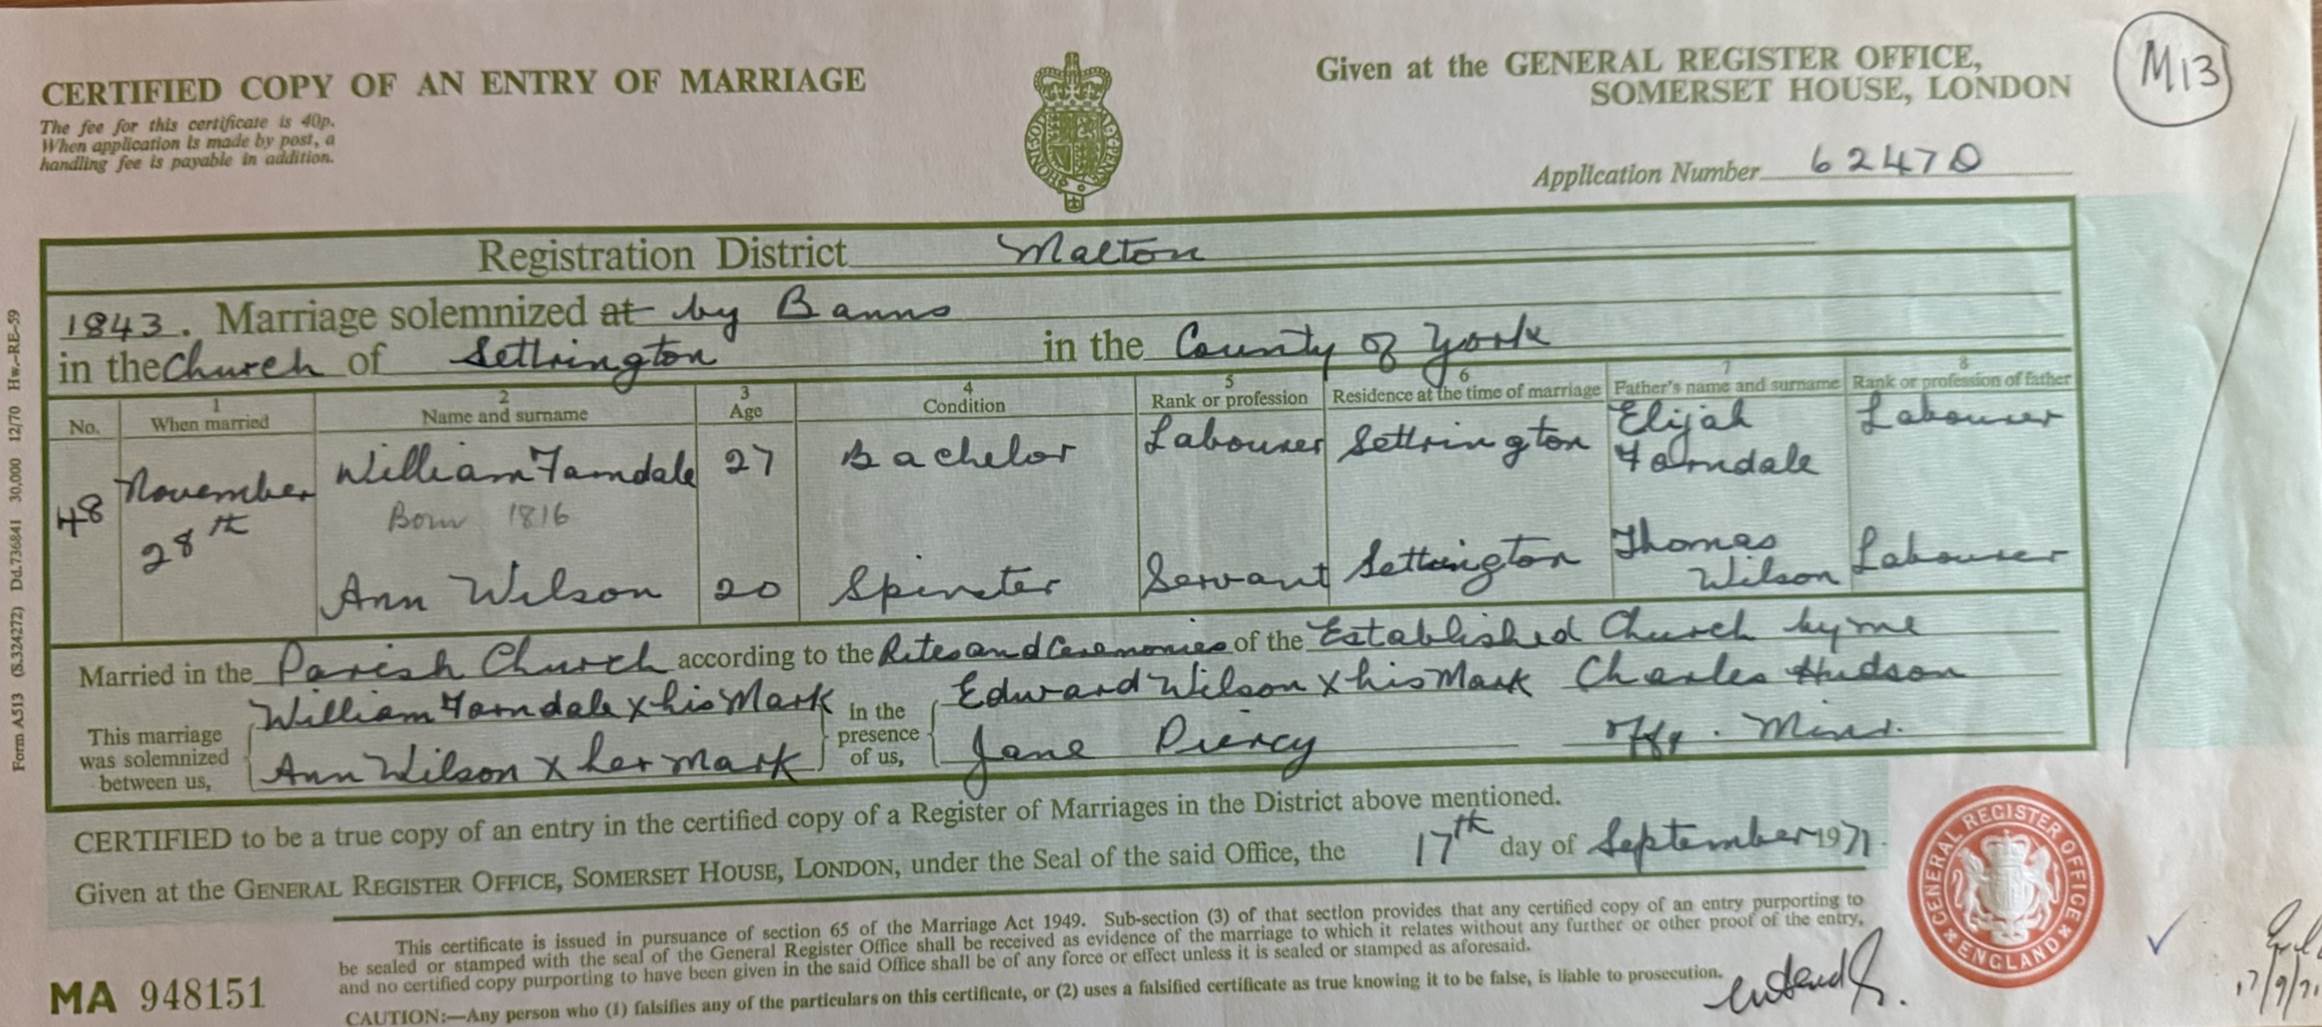 CERTIFIED COPY OF AN ENTRY OF MARRIAGE
The fee for this certificate is 40p.
When application is made by post, a
handling fee is payable in addition.
Given at the GENERAL REGISTER OFFICE,
SOMERSET HOUSE, LONDON
M13
Application Number 62470
Registration District Malton
1843. Marriage solemnized at by Banns
in the Church of Settrington in the County of York
No. 1 When married 2 Name and surname 3 Age 4 Condition 5 Rank or profession 6 Residence at the time of marriage 7 Father's name and surname 8 Rank or profession of father
48 November 28th William Farndale 27 Bachelor Labourer Settrington Elijah Farndale Labourer
Born 1816
Ann Wilson 20 Spinster Servant Settrington Thomas Wilson Labourer
Married in the Parish Church according to the Rites and Ceremonies of the Established Church by me
This marriage was solemnized between us, William Farndale x his Mark in the presence of us, Edward Wilson x his Mark Charles Hudson
Ann Wilson x her Mark Jane Piercy Offg. Minr.
CERTIFIED to be a true copy of an entry in the certified copy of a Register of Marriages in the District above mentioned.
Given at the GENERAL REGISTER OFFICE, SOMERSET HOUSE, LONDON, under the Seal of the said Office, the 17th day of September 1971.
This certificate is issued in pursuance of section 65 of the Marriage Act 1949. Sub-section (3) of that section provides that any certified copy of an entry purporting to
be sealed or stamped with the seal of the General Register Office shall be received as evidence of the marriage to which it relates without any further or other proof of the entry,
and no certified copy purporting to have been given in the said Office shall be of any force or effect unless it is sealed or stamped as aforesaid.
CAUTION:—Any person who (1) falsifies any of the particulars on this certificate, or (2) uses a falsified certificate as true knowing it to be false, is liable to prosecution.
MA 948151
GENERAL REGISTER OFFICE ENGLAND
17/9/71
Form A513 (S.324272) Dd.736841 30,000 12/70 Hw.-RE-59